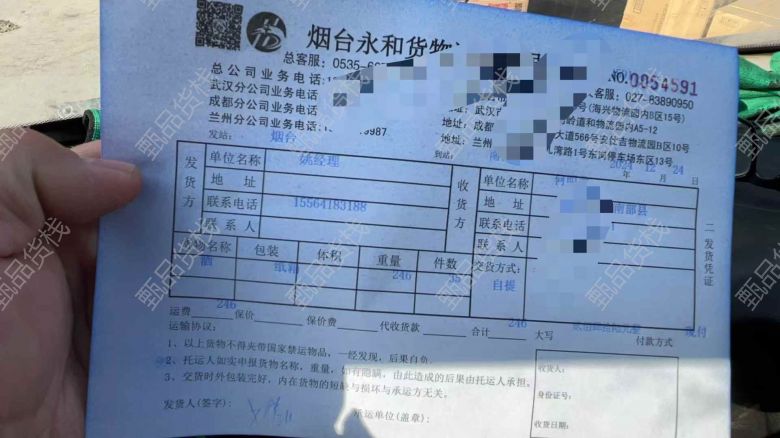 烟台永和货物
总客服：0535-6
NO.0054591
总公司业务电话：1
武汉分公司业务电话
成都分公司业务电话
兰州分公司业务电话： 9987
(海兴物流园内B区15号) 客服：027-83890950
地址：武汉市
地址：成都 岭道和物流园内A5-12
大道566号 物流园B区10号
地址：兰州 湾路1号东河停车场东区13号
发站：烟台 到站：南 2024 年 12 月 24 日
发货方
单位名称 姚经理
地址
联系电话 15564183188
联系人
收货方
单位名称
地址 南部县
联系电话
联系人
二发货凭证
货物名称 包装 体积 重量 件数 交货方式：
酒 纸箱 246 35 自提
运费 246 保价 保价费 代收货款 合计 246 大写 付款方式 现付
运输协议：
1、以上货物不得夹带国家禁运物品，一经发现，后果自负。
2、托运人如实申报货物名称，重量，如有隐瞒，由此造成的后果由托运人承担。
3、交货时外包装完好，内在货物的短缺与损坏与承运方无关。
发货人(签字)： 承运单位(盖章)：
收货人：
身份证号：
收货日期：
甄品货栈